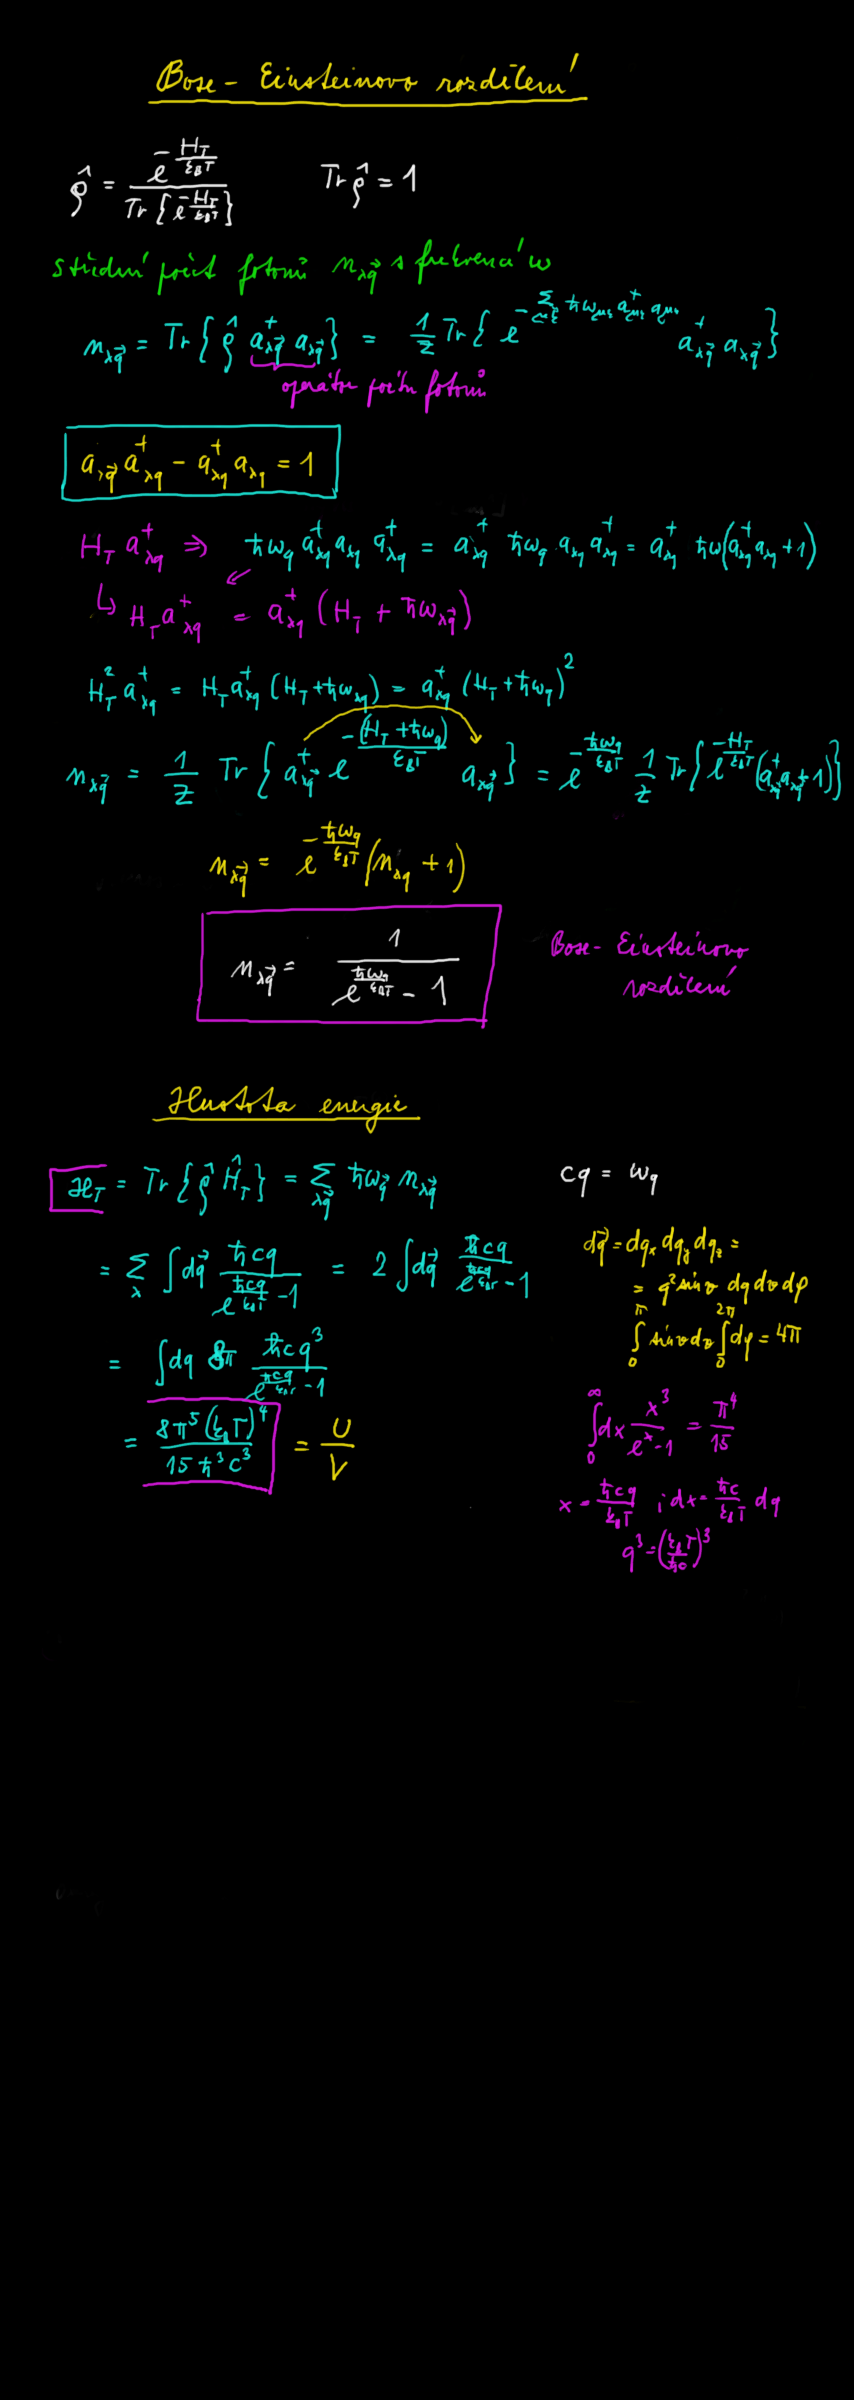 Bose - Einsteinovo rozdělení
ρ̂ = e^{-H_T/k_BT} / Tr{e^{-H_T/k_BT}}    Tr ρ̂ = 1
střední počet fotonů n_{λq⃗} s frekvencí ω
n_{λq⃗} = Tr{ρ̂ a⁺_{λq⃗} a_{λq⃗}} = 1/Z Tr{e^{-Σ ħω a⁺ a} a⁺_{λq⃗} a_{λq⃗}}
operátor počtu fotonů
a_{λq⃗} a⁺_{λq} - a⁺_{λq} a_{λq} = 1
H_T a⁺_{λq} ⇒ ħω_q a⁺_{λq} a_{λq} a⁺_{λq} = a⁺_{λq} ħω_q a_{λq} a⁺_{λq} = a⁺_{λq} ħω(a⁺_{λq} a_{λq} + 1)
↳ H_T a⁺_{λq} = a⁺_{λq} (H_T + ħω_{λq⃗})
H_T² a⁺_{λq} = H_T a⁺_{λq} (H_T + ħω_{λq}) = a⁺_{λq} (H_T + ħω_q)²
n_{λq⃗} = 1/Z Tr{a⁺_{λq⃗} e^{-(H_T + ħω_q)/k_BT} a_{λq⃗}} = e^{-ħω_q/k_BT} 1/Z Tr{e^{-H_T/k_BT} (a⁺_{λq} a_{λq} + 1)}
n_{λq⃗} = e^{-ħω_q/k_BT} (n_{λq} + 1)
n_{λq⃗} = 1 / (e^{ħω_q/k_BT} - 1)
Bose - Einsteinovo
rozdělení
Hustota energie
ℋ_T = Tr{ρ̂ Ĥ_T} = Σ_{λq⃗} ħω_{q⃗} n_{λq⃗}
= Σ_λ ∫dq⃗ ħcq / (e^{ħcq/k_BT} - 1) = 2 ∫dq⃗ ħcq / (e^{ħcq/k_BT} - 1)
= ∫dq 8π ħcq³ / (e^{ħcq/k_BT} - 1)
= 8π⁵(k_BT)⁴ / 15ħ³c³ = U/V
cq = ω_q
dq⃗ = dq_x dq_y dq_z =
= q² sin ϑ dq dϑ dφ
∫_0^π sin ϑ dϑ ∫_0^{2π} dφ = 4π
∫_0^∞ dx x³ / (e^x - 1) = π⁴/15
x = ħcq/k_BT ; dx = ħc/k_BT dq
q³ = (k_BT/ħc)³